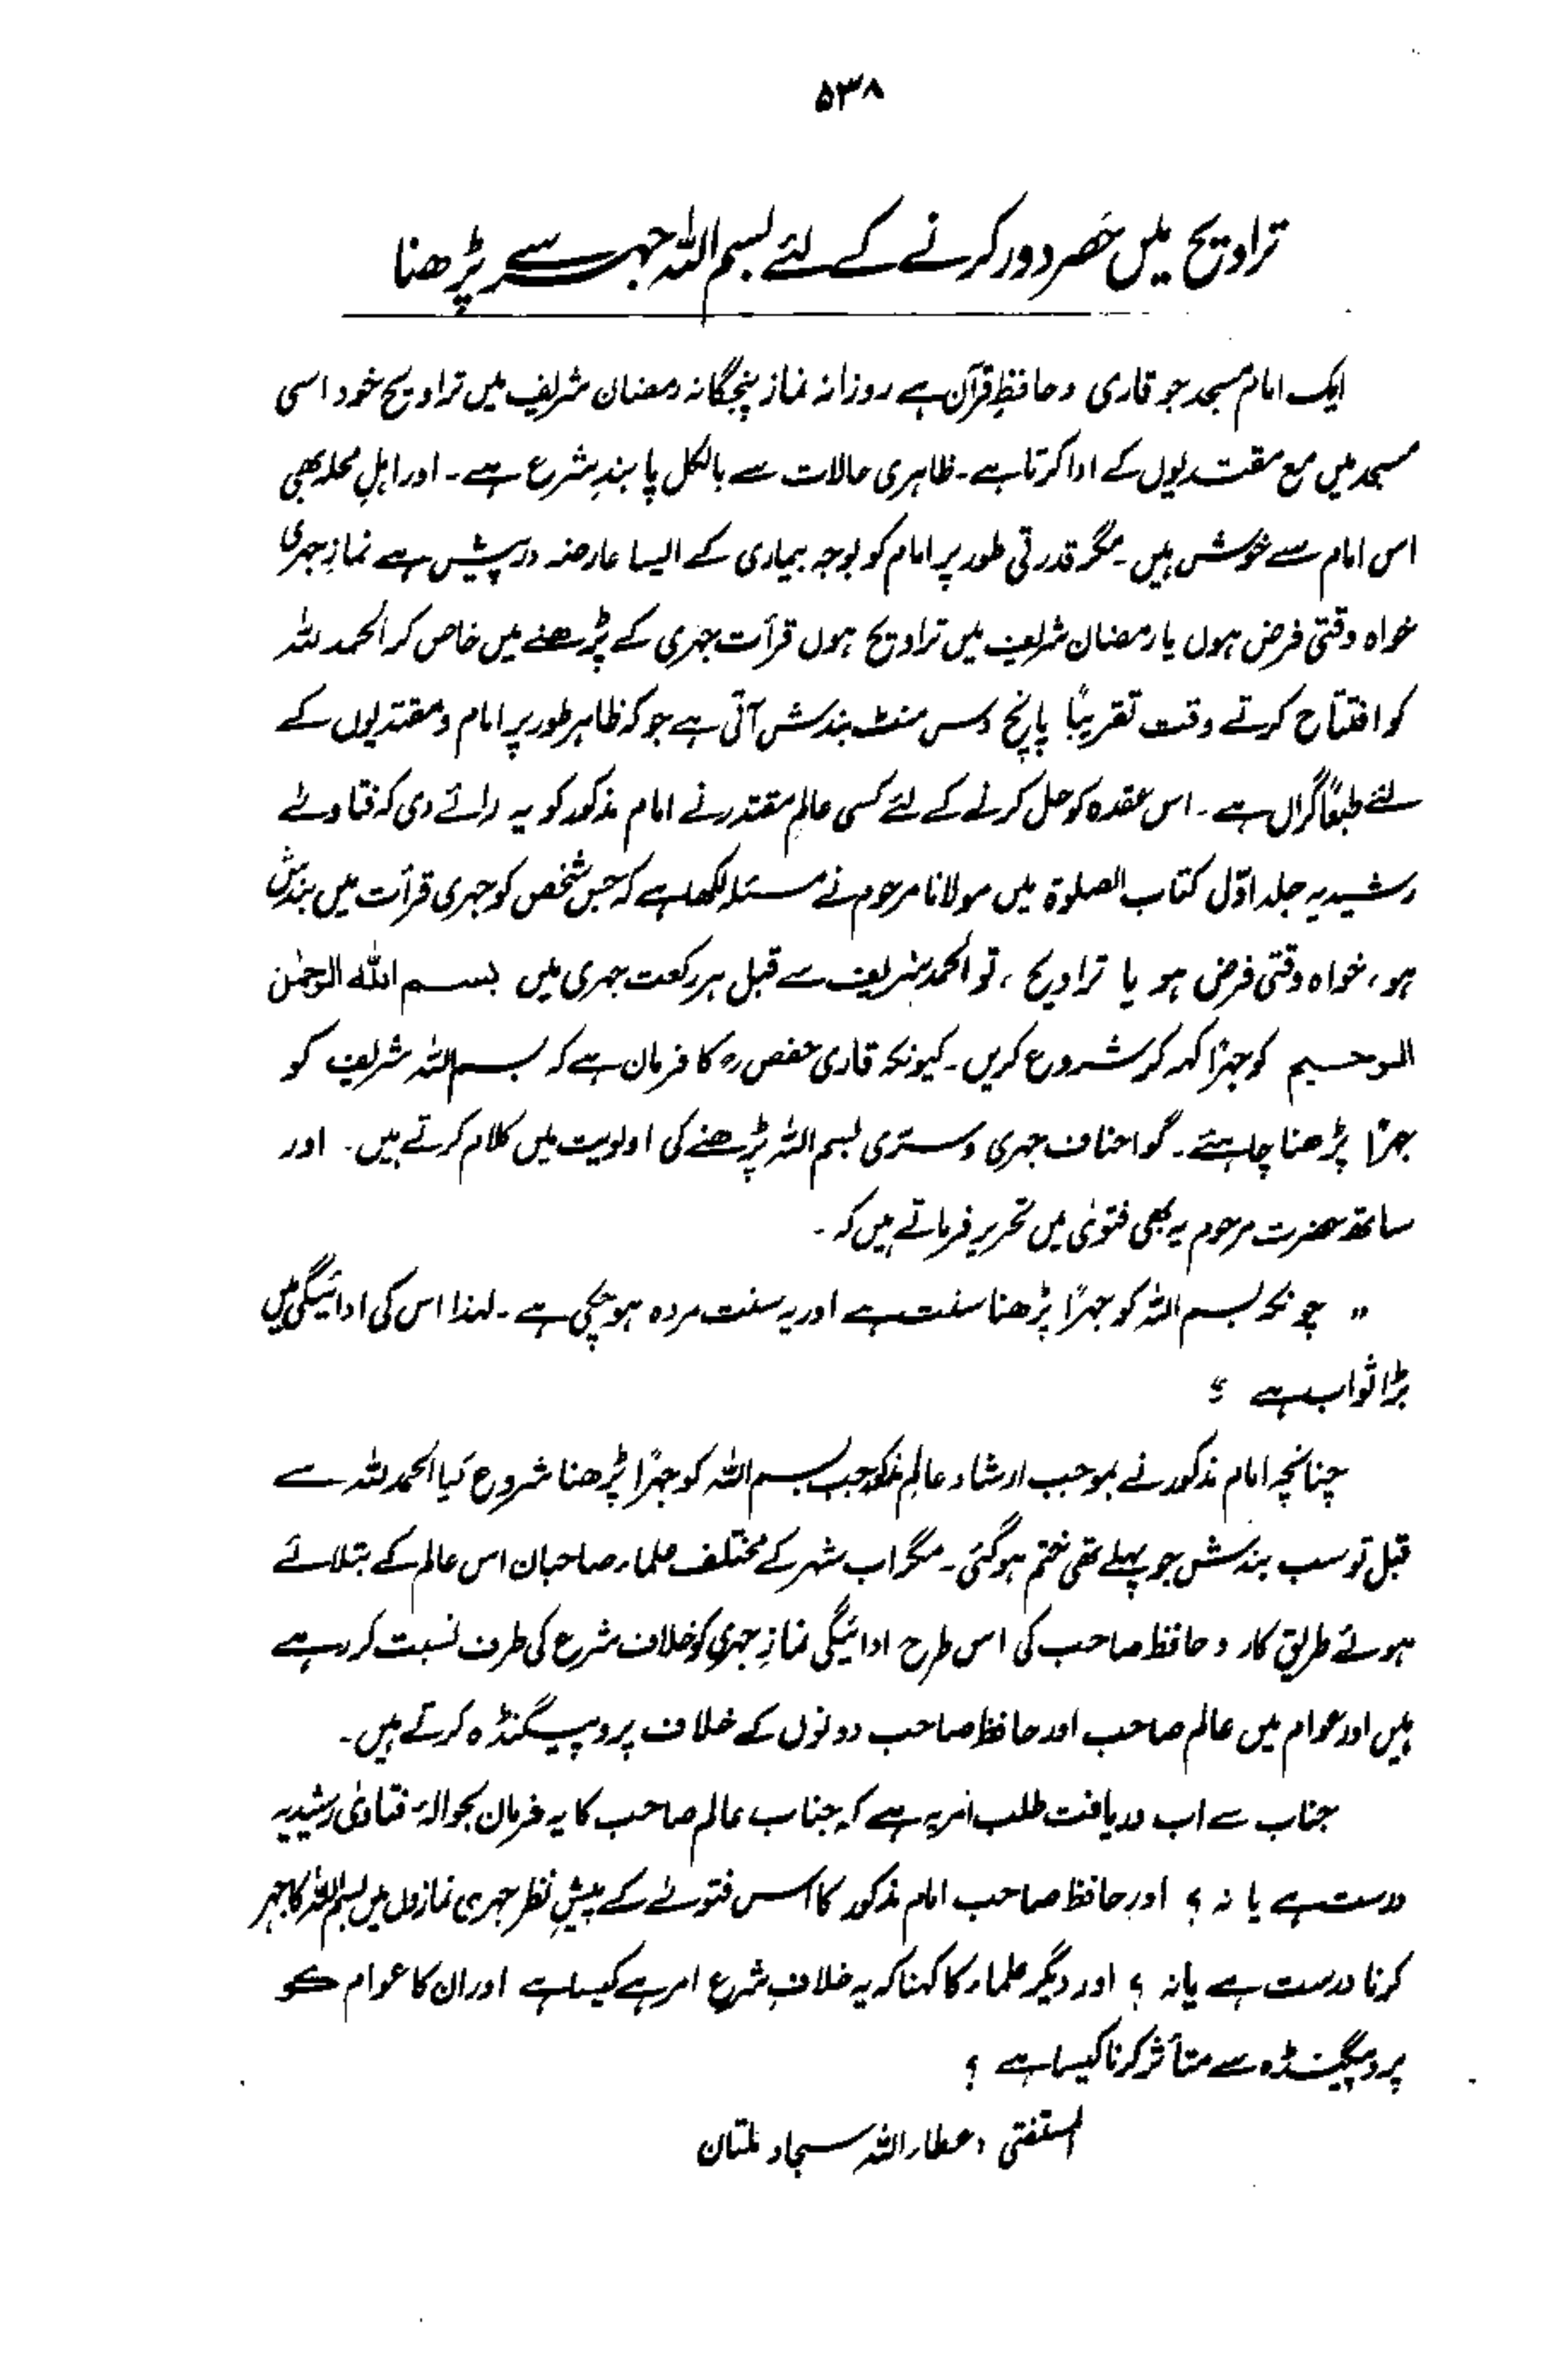 ۵۳۸
تراویح میں حَصر دور کرنے کے لئے بسم اللہ جہر سے پڑھنا
ایک امام مسجد جو قاری و حافظِ قرآن ہے روزانہ نماز پنجگانہ رمضان شریف میں تراویح خود اسی
مسجد میں مع مقتدیوں کے ادا کرتا ہے۔ ظاہری حالات سے بالکل پابندِ شرع ہے۔ اور اہلِ محلہ بھی
اس امام سے خوش ہیں۔ مگر قدرتی طور پر امام کو بوجہ بیماری کے ایسا عارضہ درپیش ہے نمازِ جہری
خواہ وقتی فرض ہوں یا رمضان شریف میں تراویح ہوں قرأت جہری کے پڑھنے میں خاص کر الحمد للہ
کو افتتاح کرتے وقت تقریباً پانچ دس منٹ بندش آتی ہے جو کہ ظاہر طور پر امام و مقتدیوں کے
لئے طبعًا گراں ہے۔ اس عقدہ کو حل کرنے کے لئے کسی عالمِ مقتدر نے امام مذکور کو یہ رائے دی کہ فتاویٰ
رشیدیہ جلد اوّل کتاب الصلوٰۃ میں مولانا مرحوم نے مسئلہ لکھا ہے کہ جس شخص کو جہری قرأت میں بندش
ہو، خواہ وقتی فرض ہو یا تراویح ، تو الحمد شریف سے قبل ہر رکعت جہری میں بسم اللہ الرحمٰن
الرحیم کو جہرًا کہہ کر شروع کریں۔ کیونکہ قاری حفص رہ کا فرمان ہے کہ بسم اللہ شریف کو
جہرًا پڑھنا چاہیئے۔ گو احناف جہری و سرّی بسم اللہ پڑھنے کی اولویت میں کلام کرتے ہیں۔ اور
ساتھ حضرت مرحوم یہ بھی فتویٰ میں تحریر فرماتے ہیں کہ۔
" چونکہ بسم اللہ کو جہرًا پڑھنا سنت ہے اور یہ سنت مردہ ہو چکی ہے۔ لہٰذا اس کی ادائیگی میں
بڑا ثواب ہے ؟
چنانچہ امام مذکور نے بموجب ارشاد عالِم مذکور جب بسم اللہ کو جہرًا پڑھنا شروع کیا الحمد للہ سے
قبل تو سب بندش جو پہلے تھی ختم ہو گئی۔ مگر اب شہر کے مختلف علماء صاحبان اس عالم کے بتلائے
ہوئے طریق کار و حافظ صاحب کی اس طرح ادائیگی نمازِ جہری کو خلاف شرع کی طرف نسبت کر رہے
ہیں اور عوام میں عالم صاحب اور حافظ صاحب دونوں کے خلاف پروپیگنڈہ کرتے ہیں۔
جناب سے اب دریافت طلب امر یہ ہے کہ جناب عالم صاحب کا یہ فرمان بحوالہ فتاویٰ رشیدیہ
درست ہے یا نہ ؟ اور حافظ صاحب امام مذکور کا اس فتوے کے پیشِ نظر جہری نمازوں میں بسم اللہ کا جہر
کرنا درست ہے یا نہ ؟ اور دیگر علماء کا کہنا کہ یہ خلافِ شرع امر ہے کیسا ہے اور ان کا عوام کو
پروپیگنڈہ سے متأثر کرنا کیسا ہے ؟
المستفتی ، عطاء اللہ سجاد ملتان